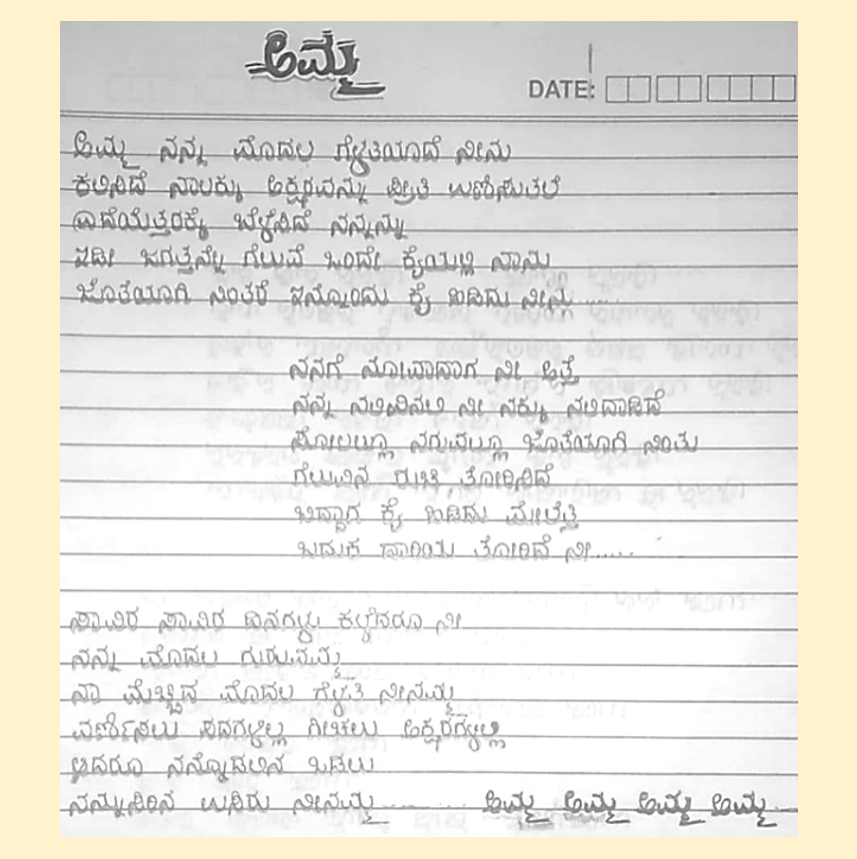 ಅಮ್ಮ
DATE:
ಅಮ್ಮ ನನ್ನ ಮೊದಲ ಗೆಳತಿಯಾದೆ ನೀನು
ಕಲಿಸಿದೆ ನಾಲಕ್ಕು ಅಕ್ಷರವನ್ನು ಪ್ರೀತಿ ಉಣಿಸುತಲೆ
ಎದೆಯೆತ್ತರಕ್ಕೆ ಬೆಳೆಸಿದೆ ನನ್ನನ್ನು
ಇಡೀ ಜಗತ್ತನೇ ಗೆಲುವೆ ಒಂದೇ ಕೈಯಲ್ಲಿ ನಾನು
ಜೊತೆಯಾಗಿ ನಿಂತರೆ ಇನ್ನೊಂದು ಕೈ ಹಿಡಿದು ನೀನು .....
ನನಗೆ ನೋವಾದಾಗ ನೀ ಅತ್ತೆ
ನನ್ನ ನಲಿವಿನಲಿ ನೀ ನಕ್ಕು ನಲಿದಾಡಿದೆ
ಸೋಲಲ್ಲೂ ನಗುವಲ್ಲೂ ಜೊತೆಯಾಗಿ ನಿಂತು
ಗೆಲುವಿನ ರುಚಿ ತೋರಿಸಿದೆ
ಬಿದ್ದಾಗ ಕೈ ಹಿಡಿದು ಮೇಲೆತ್ತಿ
ಬದುಕ ದಾರಿಯ ತೋರಿದೆ ನೀ......
ಸಾವಿರ ಸಾವಿರ ದಿನಗಳು ಕಳೆದರೂ ನೀ
ನನ್ನ ಮೊದಲ ಗುರುವಮ್ಮ
ನಾ ಮೆಚ್ಚಿದ ಮೊದಲ ಗೆಳತಿ ನೀನಮ್ಮ
ವರ್ಣಿಸಲು ಪದಗಳಿಲ್ಲ ಗೀಚಲು ಅಕ್ಷರಗಳಿಲ್ಲ
ಆದರೂ ನನ್ನೊಡಲಿನ ಒಡಲು
ನನ್ನುಸಿರಿನ ಉಸಿರು ನೀನಮ್ಮ ......... ಅಮ್ಮ ಅಮ್ಮ ಅಮ್ಮ ಅಮ್ಮ